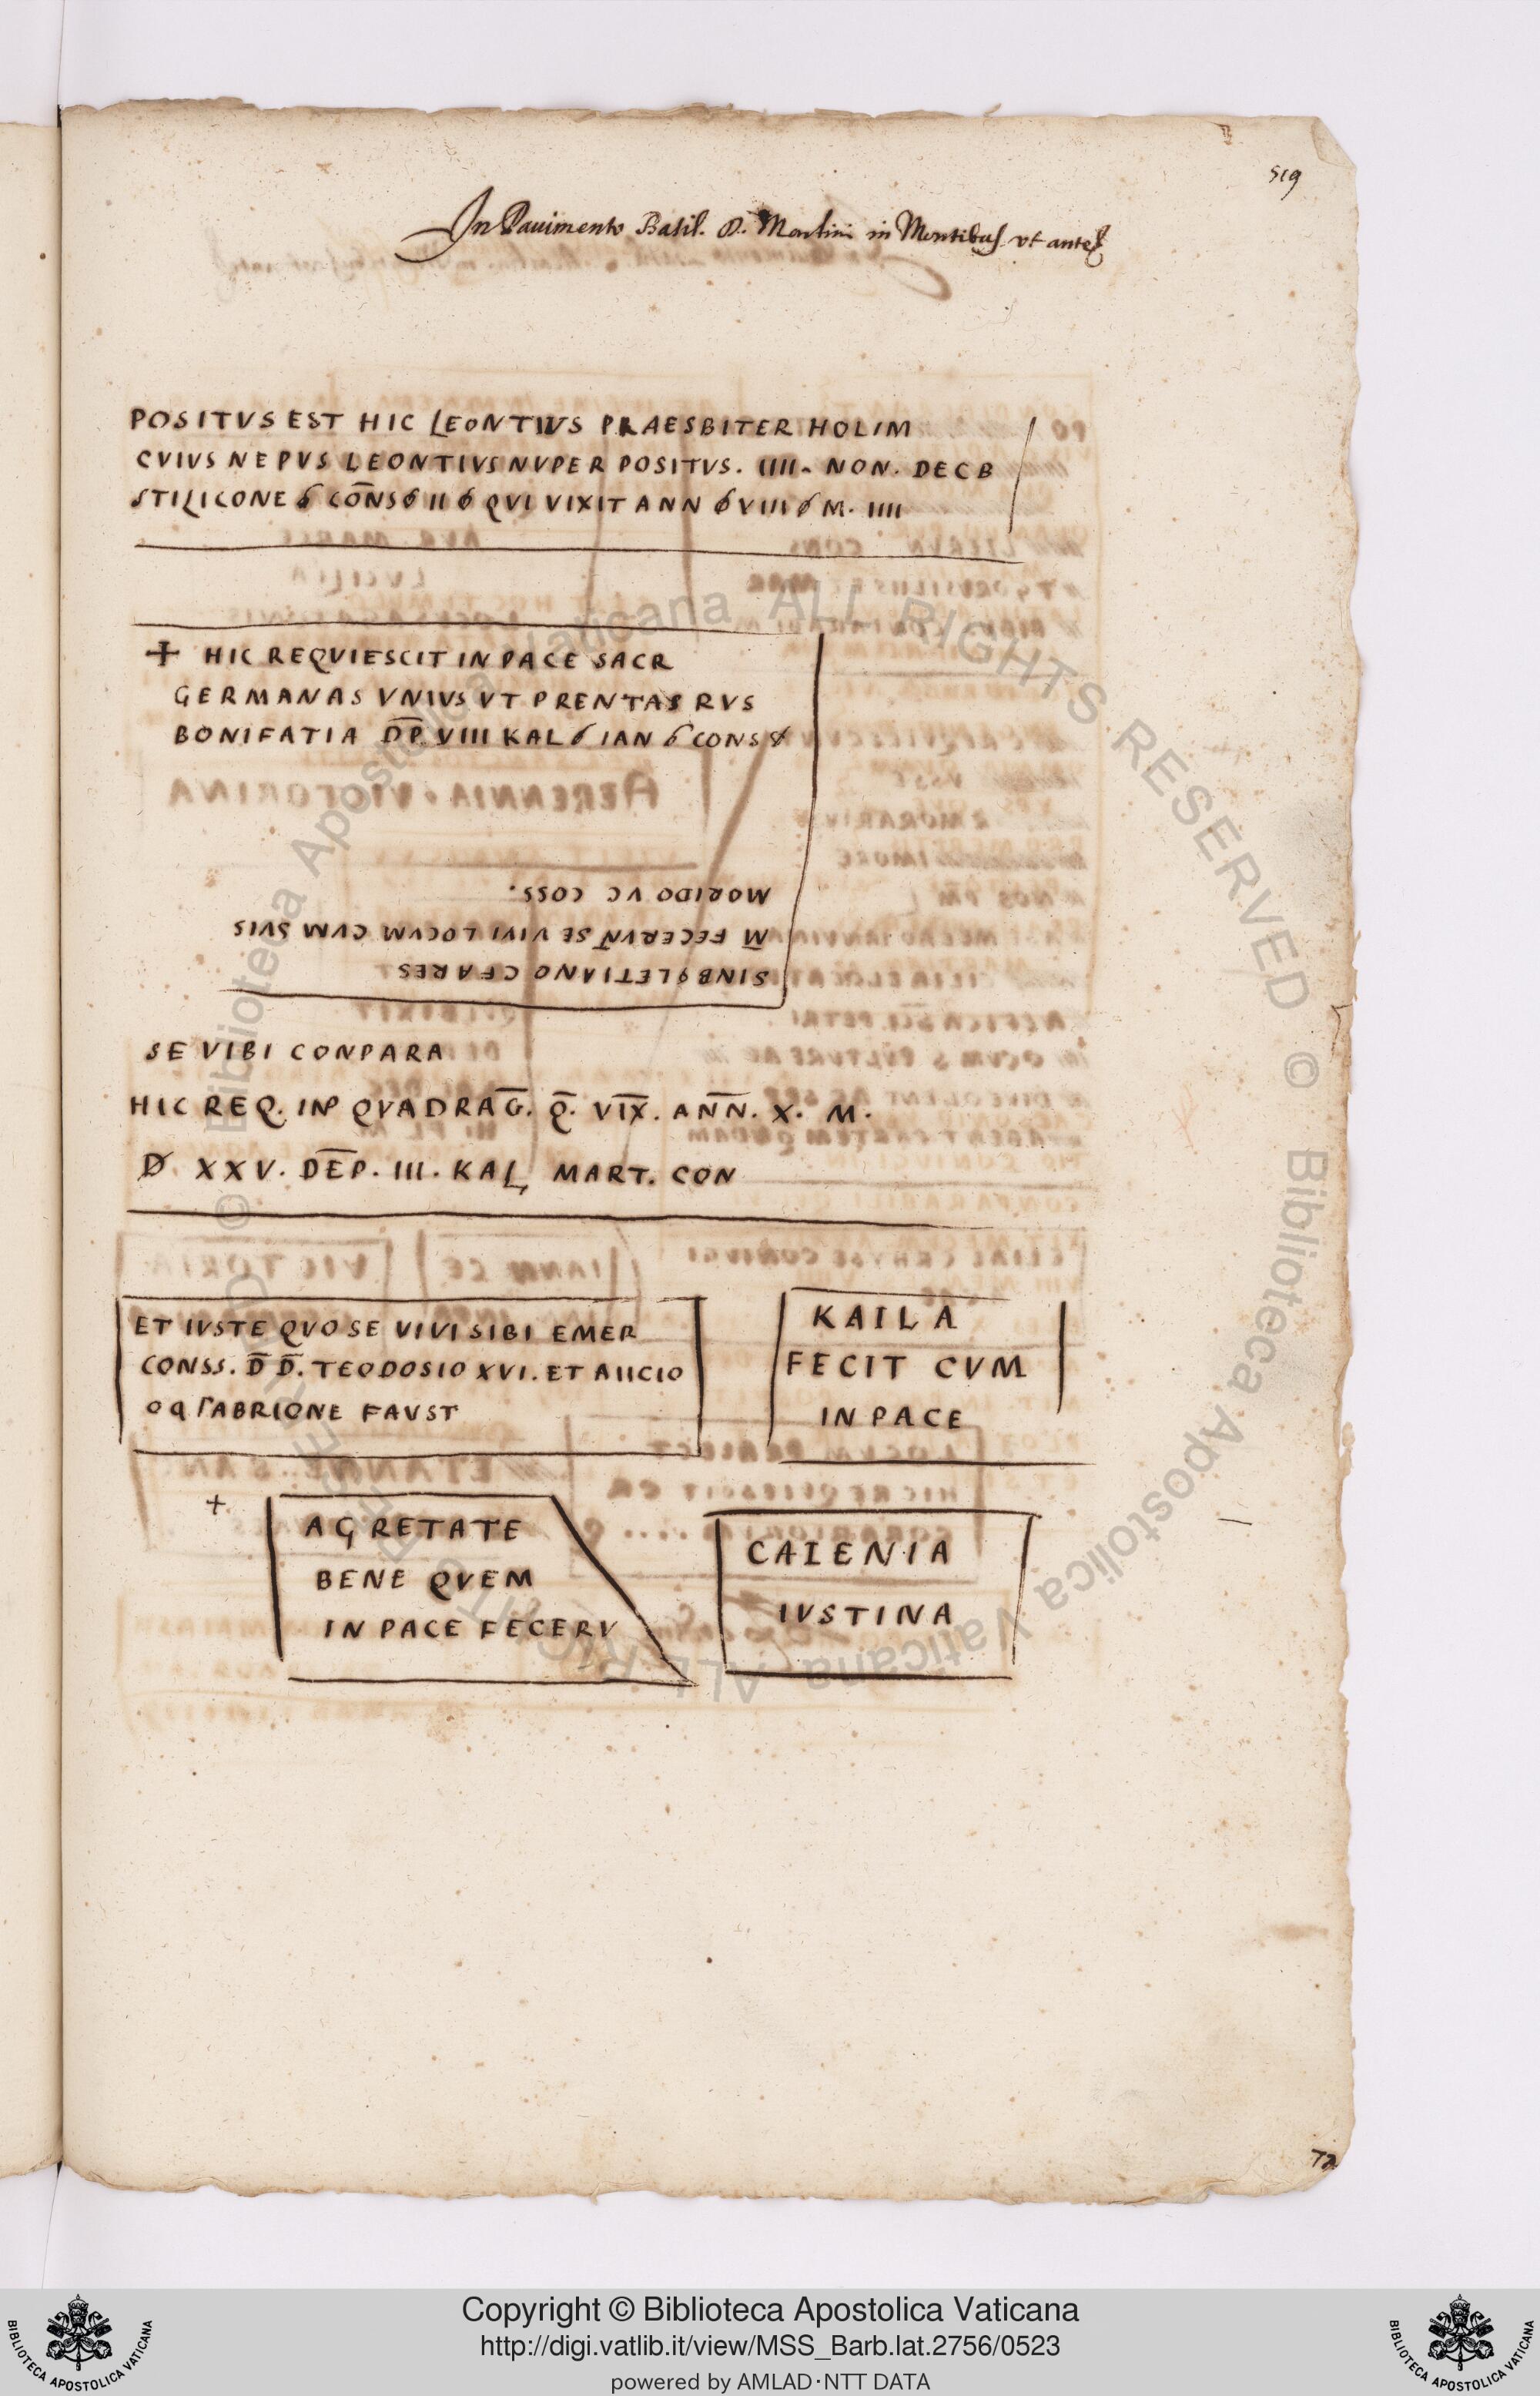 519
In Pauimento Basil. D. Martini in Montibus vt antea
POSITVS EST HIC LEONTIVS PRAESBITER HOLIM
CVIVS NEPVS LEONTIVS NVPER POSITVS. IIII. NON. DECB
STILICONE CO̅NS II QVI VIXIT ANN VIII M. IIII
+ HIC REQVIESCIT IN PACE SACR
GERMANAS VNIVS VT PRENTAS RVS
BONIFATIA D̅P̅. VIII KAL IAN CONS
SINBOLETIANO CFARES
M̅ FECERVN̅T SE VIVI LOCVM CVM SVIS
MORIDO VC COSS.
SE VIBI CONPARA
HIC REQ. IN QVADRAG̅. Q̅. VI̅X̅. AN̅N̅. X. M.
D XXV. DE̅P̅. III. KAL MART. CON
ET IVSTE QVO SE VIVI SIBI EMER
CONSS. D̅ D̅. TEODOSIO XVI. ET AIICIO
OQ ГABRIONE FAVST
KAILA
FECIT CVM
IN PACE
+
AGRETATE
BENE QVEM
IN PACE FECERV
CAIENIA
IVSTINA
Copyright © Biblioteca Apostolica Vaticana
http://digi.vatlib.it/view/MSS_Barb.lat.2756/0523
powered by AMLAD·NTT DATA
BIBLIOTECA APOSTOLICA VATICANA
BIBLIOTECA APOSTOLICA VATICANA